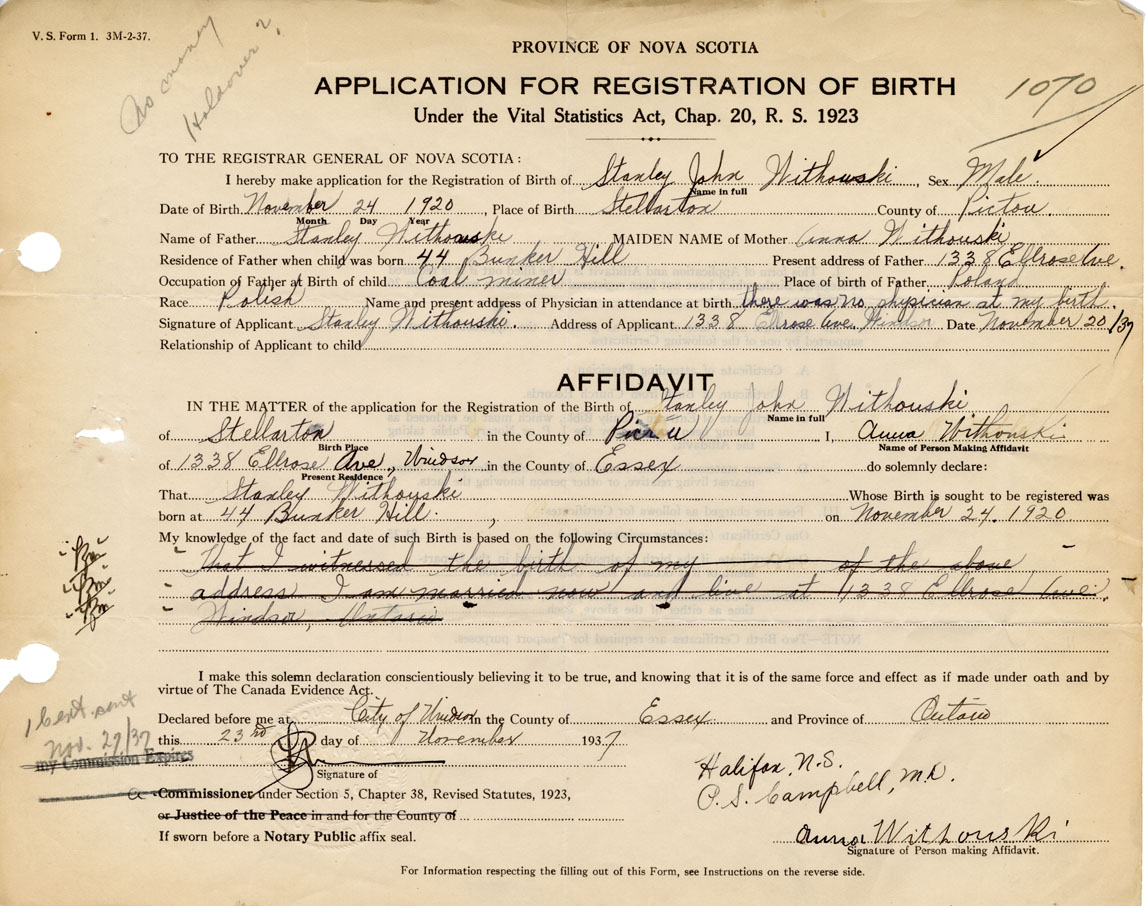 V. S. Form 1. 3M-2-37.
No money
Holdover?
1070
PROVINCE OF NOVA SCOTIA
APPLICATION FOR REGISTRATION OF BIRTH
Under the Vital Statistics Act, Chap. 20, R. S. 1923
TO THE REGISTRAR GENERAL OF NOVA SCOTIA:
I hereby make application for the Registration of Birth of Stanley John Withouski, Sex Male.
Name in full
Date of Birth November 24 1920, Place of Birth Stellarton County of Pictou.
Month Day Year
Name of Father Stanley Withouski MAIDEN NAME of Mother Anna Withouski
Residence of Father when child was born 44 Bunker Hill Present address of Father 1338 Ellrose Ave.
Occupation of Father at Birth of child Coal miner Place of birth of Father Poland
Race Polish Name and present address of Physician in attendance at birth there was no physician at my birth.
Signature of Applicant Stanley Withouski. Address of Applicant 1338 Ellrose Ave. Windsor Date November 20/37
Relationship of Applicant to child
AFFIDAVIT
IN THE MATTER of the application for the Registration of the Birth of Stanley John Withouski
Name in full
of Stellarton in the County of Pictou I, Anna Withouski
Birth Place Name of Person Making Affidavit
of 1338 Ellrose Ave., Windsor in the County of Essex do solemnly declare:
Present Residence
That Stanley Withouski Whose Birth is sought to be registered was
born at 44 Bunker Hill. , on November 24. 1920.
My knowledge of the fact and date of such Birth is based on the following Circumstances:
That I witnessed the birth of my of the above
address I am married now and live at 1338 Ellrose Ave.
Windsor, Ontario
I make this solemn declaration conscientiously believing it to be true, and knowing that it is of the same force and effect as if made under oath and by
virtue of The Canada Evidence Act.
Declared before me at City of Windsor in the County of Essex and Province of Ontario
this 23rd day of November 1937
1 Cert. sent
Nov. 29/37
my Commission Expires
Signature of
Halifax, N.S.
P. S. Campbell, M.D.
a Commissioner under Section 5, Chapter 38, Revised Statutes, 1923,
or Justice of the Peace in and for the County of
If sworn before a Notary Public affix seal.
Anna Withouski
Signature of Person making Affidavit.
For Information respecting the filling out of this Form, see Instructions on the reverse side.